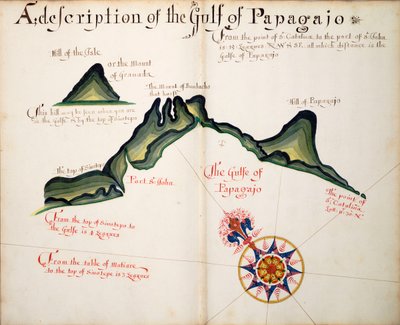 A description of the Gulf of Papagajo
From the point of St Catalina to the port of St John
is 19 Leagues N W & S E all which distance is the
Gulfe of Papagajo
Hill of the
or the Mount
of Granada
The Mount of
that burst
This hill may be seen when you are
in the Gulfe & by the top of
Hill of Papagajo
The top of
Port St John
The Gulfe of
Papagajo
The point of
St Catalina
From the top of
the Gulfe is 4 Leagues
From the table of
to the top of is 3 Leagues